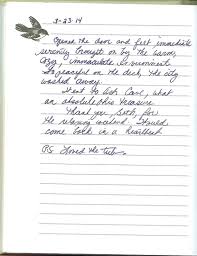 3-23-14
Opened the door and felt immediate
serenity brought on by the warm,
cozy, immaculate environment.
So peaceful on the deck, the city
washed away.
Hats to Ask Care, what
an absolute treasure.
Thank you, Seth, for
the relaxing weekend. Would
come back in a heartbeat
PS Loved the tub.